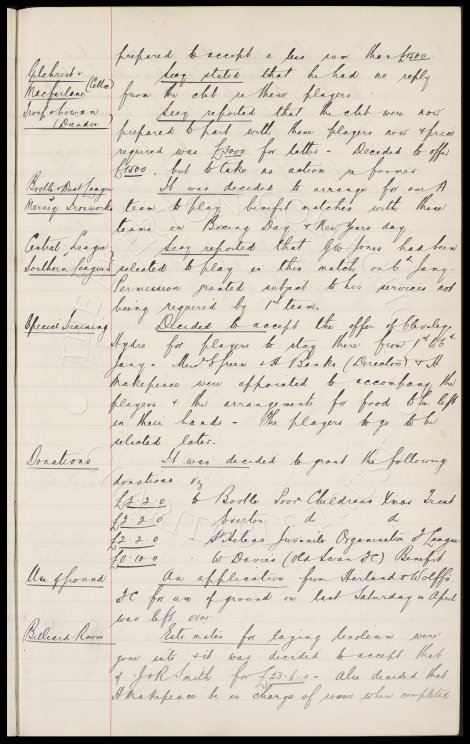 prepared to accept a less sum than £1500.
Gilchrist & Secy stated that he had no reply
Macfarlane (Celtic) from the club re these players.
Troup & Cowan Secy reported that the club were now
(Dundee) prepared to part with these players now & price
required was £3000 for latter - Decided to offer
£1500. but to take no action re former
Bootle & Dist League It was decided to arrange for our A
& Mersey Ironworks team to play benefit matches with these
teams on Boxing Day & New Years day
Central League Secy reported that G W Jones had been
v Southern League selected to play in this match on 6th Jany-
Permission granted subject to his services not
being required by 1st team.
Special Training Decided to accept the offer of
Hydro for players to stay there from 1st to 6th
Jany - Messrs Green & H Banks (Directors) & H
Makepeace were appointed to accompany the
players & the arrangements for food to be left
in their hands - The players to go to be
selected later.
Donations It was decided to grant the following
donations. viz
£2.2.0 to Bootle Poor Childrens Xmas Treat
£2.2.0 - Everton do do
£2.2.0 - St Helens Juvenile Organisation F League
£0.10.0 - W Davies (Old Swan FC) Benefit
Use of ground An application from Harland & Wolffs
FC for use of ground on last Saturday in April
was left over.
Billiard Room Estimates for laying linoleum were
gone into & it was decided to accept that
of J & R Smith for £23.6.0 - Also decided that
H Makepeace be in charge of room when completed